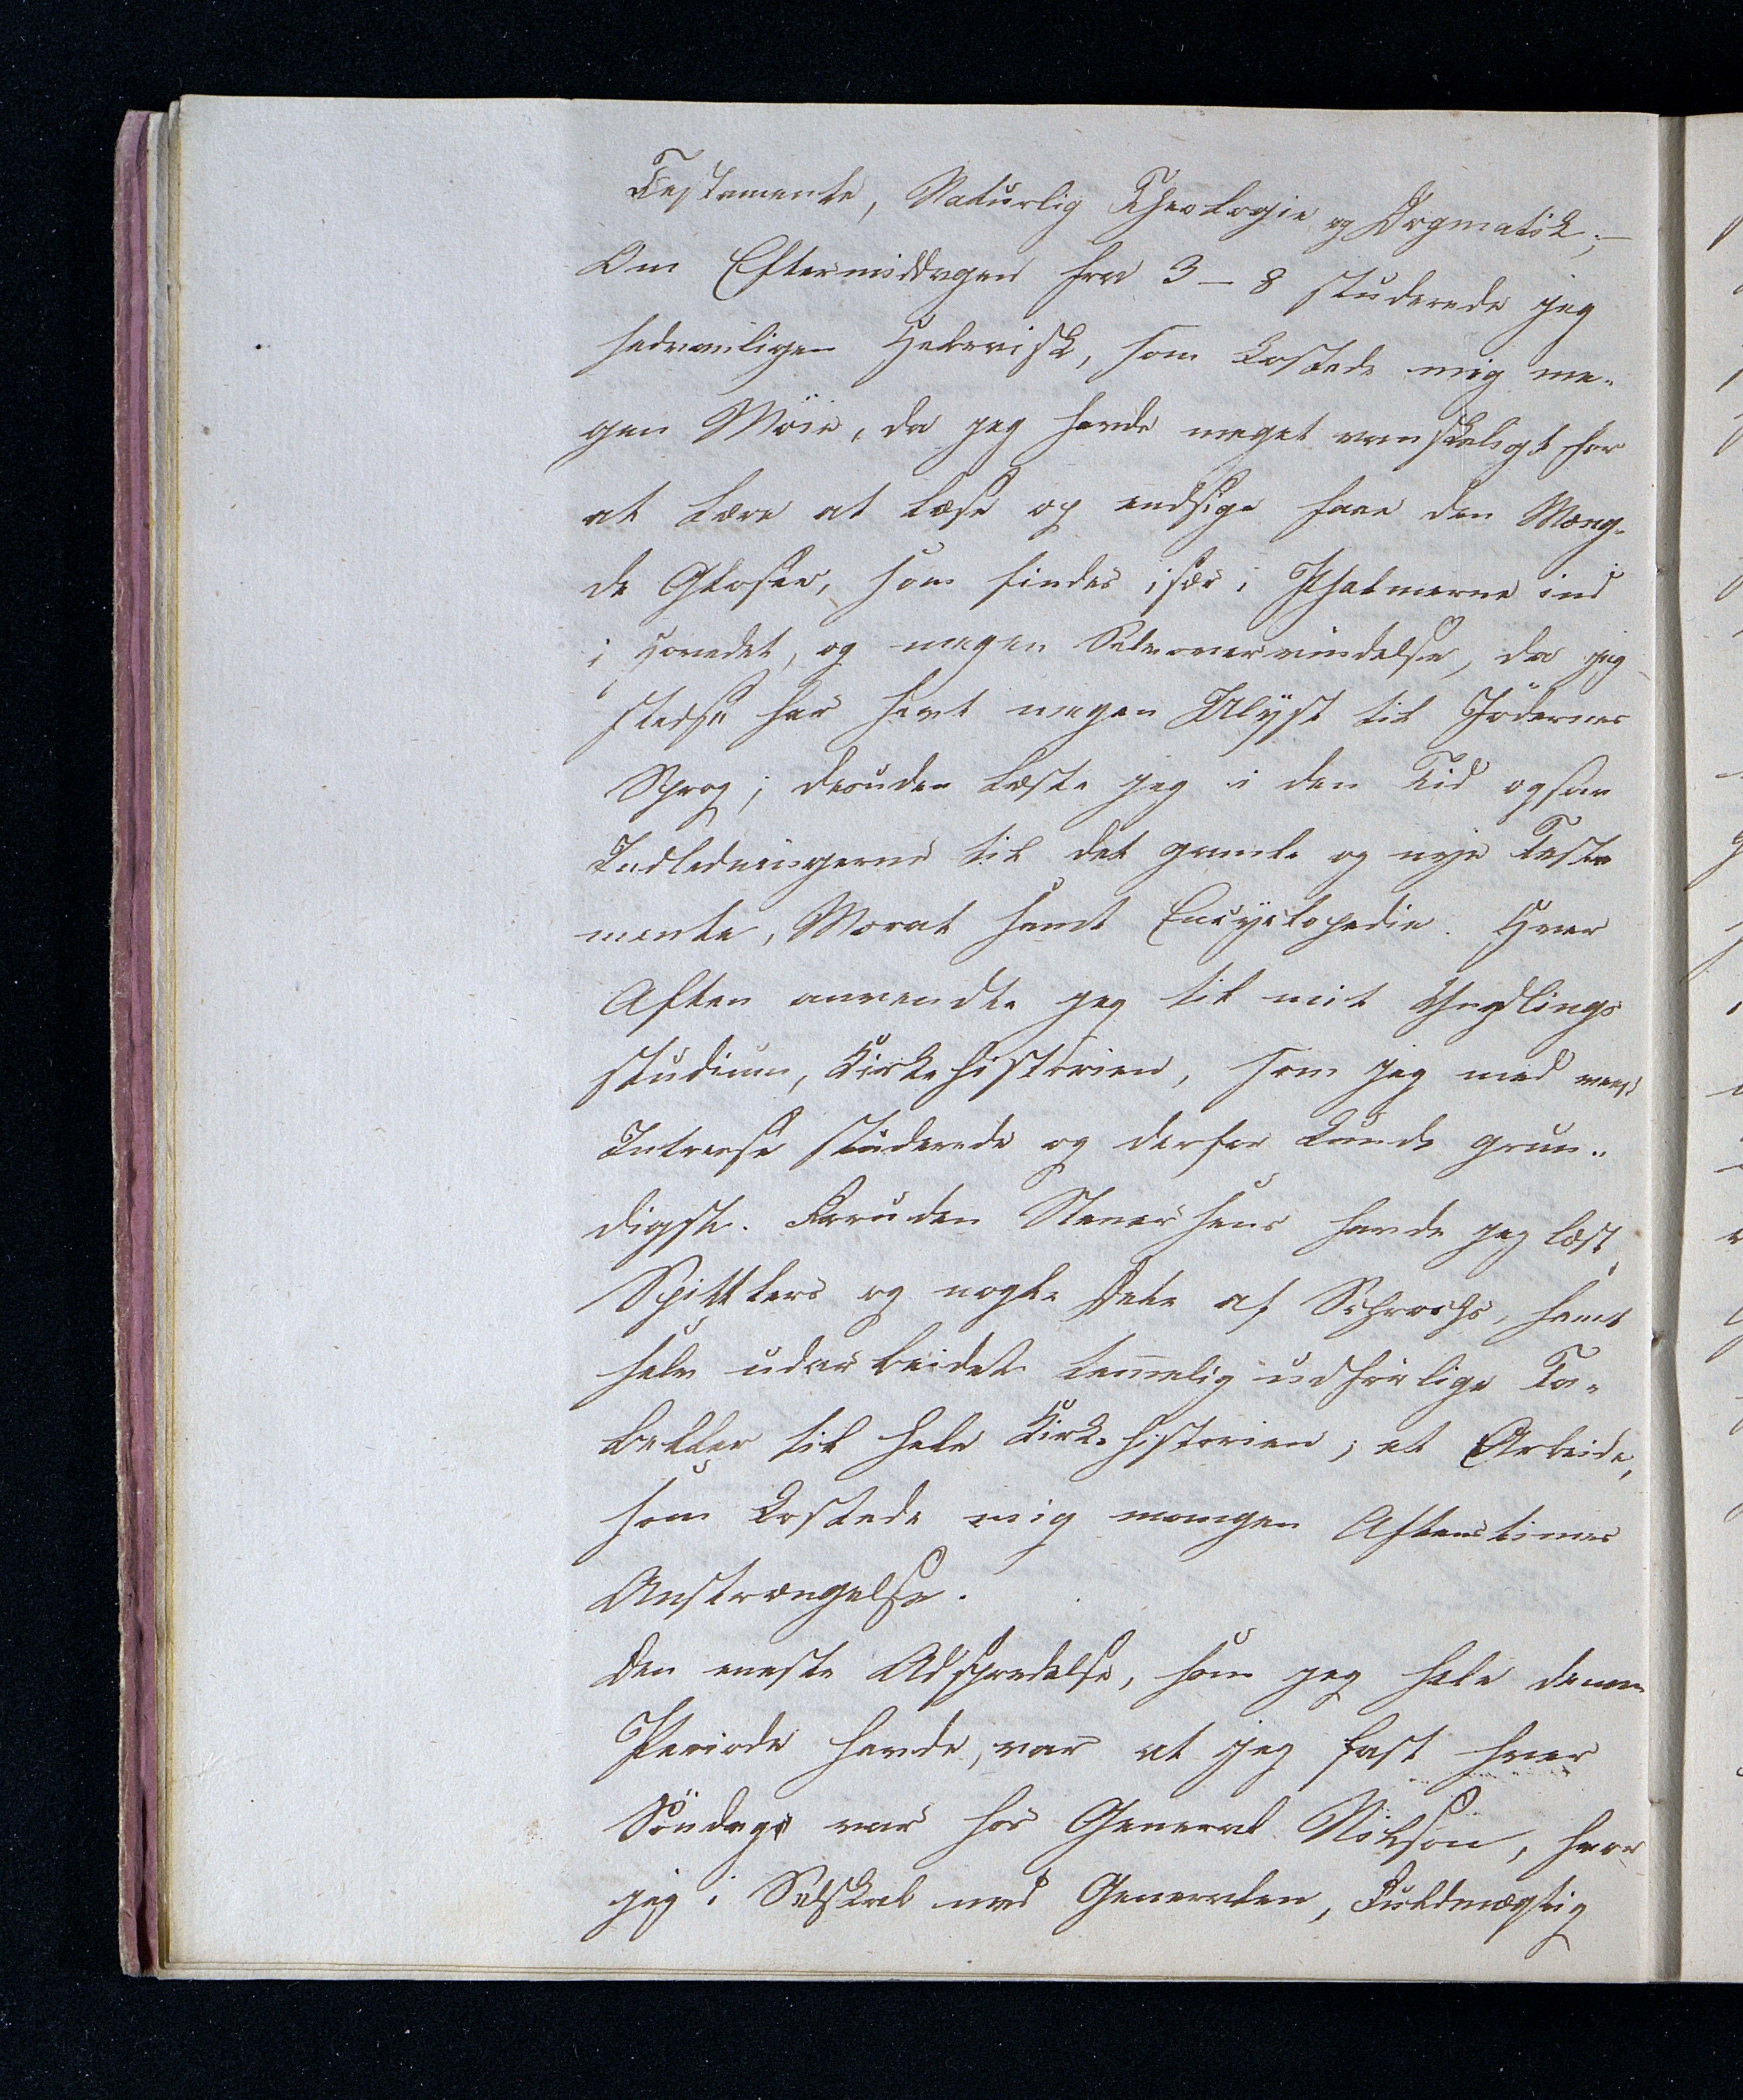 Testamente, Naturlig Theologie og Dogmatik; –
Om Eftermiddagen fra 3 – 8 studerede jeg
sedvanligen Hebraisk, som kostede mig me-
gen Möie, da jeg havde meget vanskeligt for
at lære at læse og endsige faae den Mæng-
de Gloser, som findes især i Psalmerne ind
i Hovedet, og megen Selvovervindelse, da jeg
stedse har havt megen Ulyst til Jödernes
Sprog; desuden læste jeg i den Tid ogsaa
Indledningerne til det gamle og nye Testa
mente, Moral samt Encyclopedie. Hver
Aften anvendte jeg til mit Yndlings
studium, Kirkehistorien, som jeg med mest
Intresse studerede og derfor kunde grun-
digst. Foruden Stenersens havde jeg læst
Spittlers og nogle Dele af Schrochs, samt
selv udarbeidet temmelig udförlige Ta-
beller til hele Kirkehistorien; et Arbeide,
som kostede mig mangen Aftenstimes
Anstrængelse.
Den eneste Adspredelse, som jeg hele denne
Periode havde, var at jeg fast hver
Söndag var hos General Nilson, hvor
jeg i Selskab med Generalen, Fuldmægtig